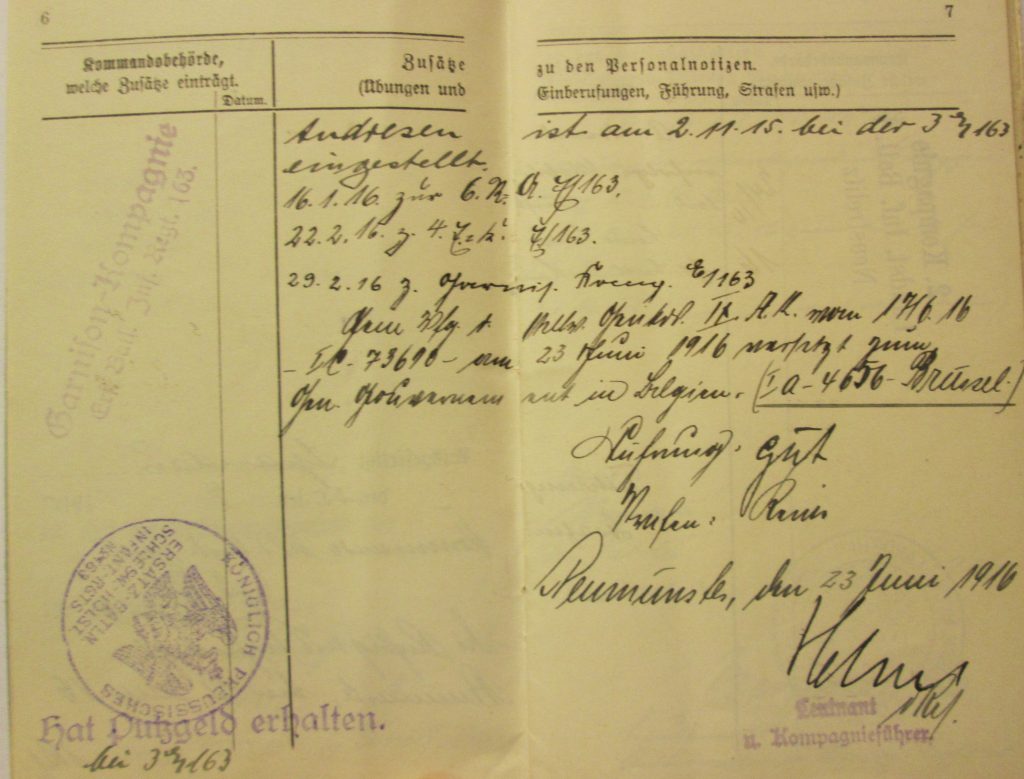 6
7
Kommandobehörde,
welche Zusätze einträgt.
Datum.
Zusätze zu den Personalnotizen.
(Übungen und Einberufungen, Führung, Strafen usw.)
Andresen ist am 2.11.15. bei der 3 163
eingestellt.
16.1.16. zur 6. R. 163.
22.2.16. z. 4. 163.
29.2.16 z. Garnis. Komp. E/163
Gem Vfg. d. stellv. Genkdo. IX. A.K. vom 17/6.16
- Ic - 73690 - am 23 Juni 1916 versetzt zum
Gen. Gouvernement in Belgien. (Ia - 4656 - Brüssel.)
Führung: gut
Strafen: Keine
Neumünster, den 23 Juni 1916
Leutnant
u. Kompagnieführer.
Garnison-Kompagnie
Ers. Batl. Inf. Regt. 163.
KÖNIGLICH PREUSSISCHES
ERSATZ-BATLN
SCHLESW.-HOLST.
INFANT.-RGTS
No 163
Hat Putzgeld erhalten.
bei 3 163